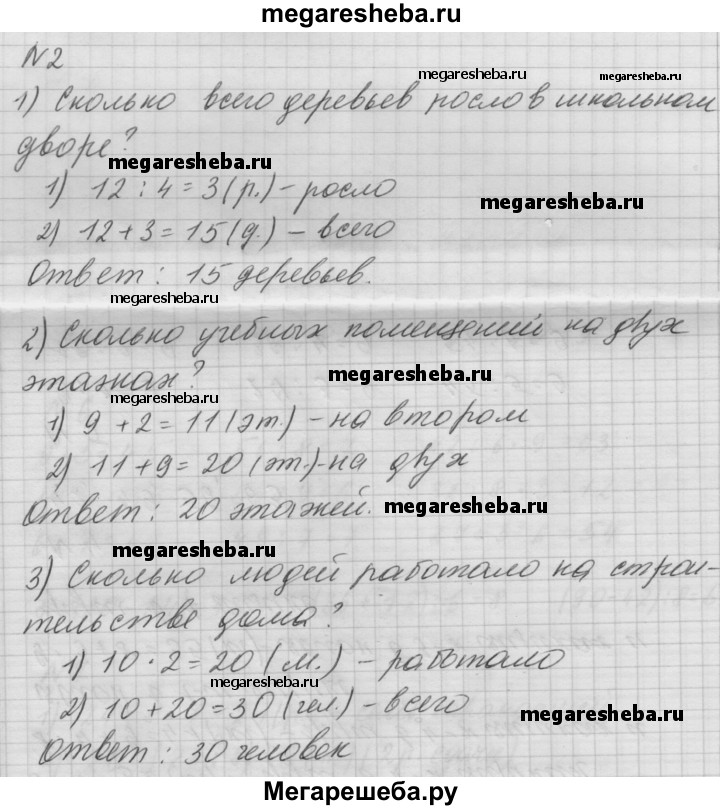 megaresheba.ru
N2
megaresheba.ru megaresheba.ru
1) Сколько всего деревьев росло в школьном
дворе?
megaresheba.ru
1) 12 : 4 = 3 (р.) – росло
megaresheba.ru
2) 12 + 3 = 15 (д.) – всего
Ответ : 15 деревьев.
megaresheba.ru
2) Сколько учебных помещений на двух
megaresheba.ru
этажах?
megaresheba.ru
1) 9 + 2 = 11 (эт.) – на втором
2) 11 + 9 = 20 (эт.) – на двух
Ответ : 20 этажей.
megaresheba.ru
megaresheba.ru
3) Сколько людей работало на строи-
тельстве дома?
1) 10 · 2 = 20 (м.) – работало
megaresheba.ru
2) 10 + 20 = 30 (чел.) – всего
megaresheba.ru
Ответ : 30 человек
Мегарешеба.ру